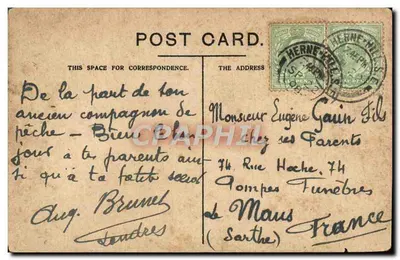 POST CARD.
THIS SPACE FOR CORRESPONDENCE.
THE ADDRESS
HERNE-HILL.S.E.
HERNE-HILL.S.E.
De la part de ton
ancien compagnon de
pêche - Bien
jour à tes parents aus
si qu'à ta petite sœur
Aug. Brunet
Londres
Monsieur Eugène Gouin Fils
chez ses Parents
74 Rue Hoche. 74
Pompes Funèbres
Le Mans
(Sarthe) France
CPAPHIL.COM